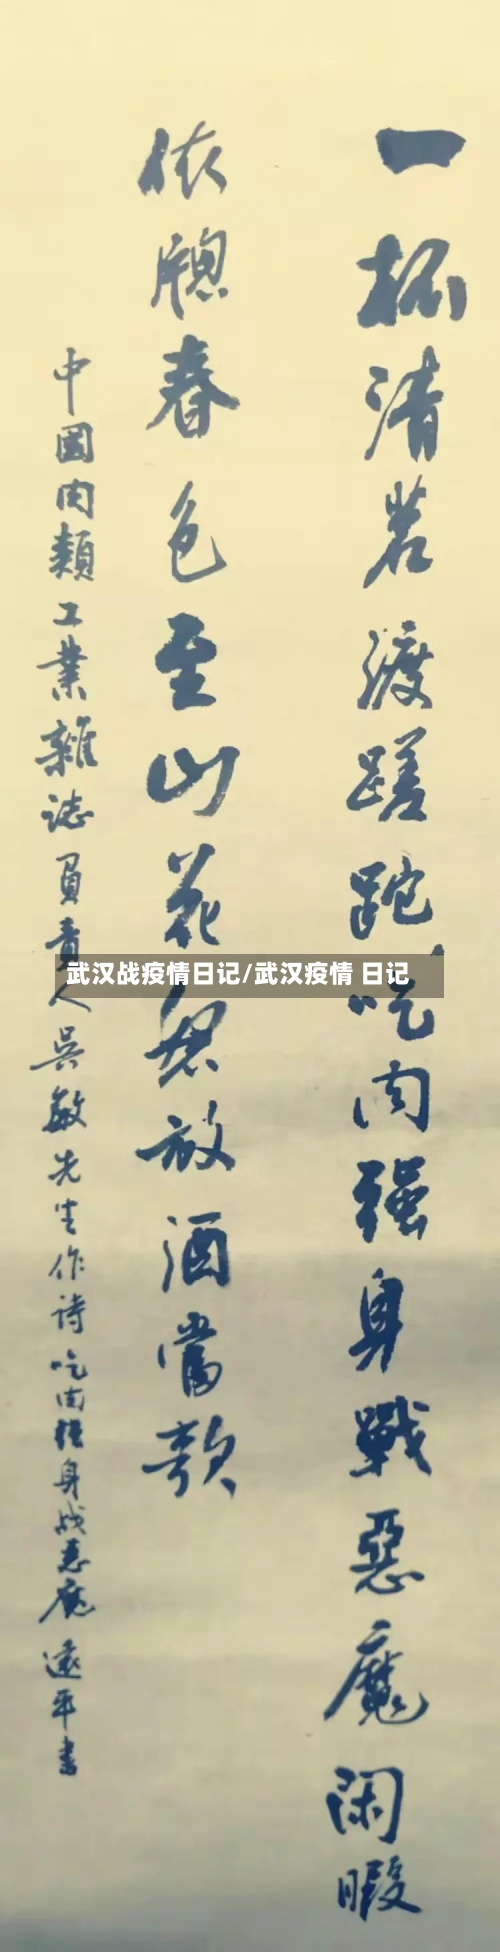 一杯清茗渡蹉跎吃肉强身戰惡魔閑暇
依窻春色至山花怒放酒當歌
中國肉類工業雜誌負責人吳敏先生作詩吃肉强身战惡魔遠平書
武汉战疫情日记/武汉疫情 日记